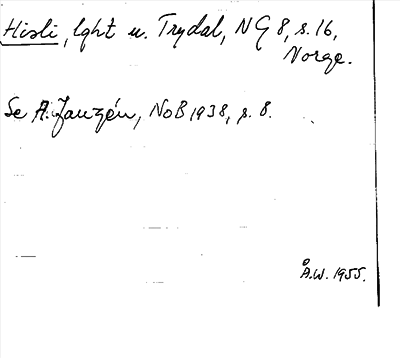 Hisli, lght u. Trydal, NG 8, s. 16,
Norge.
Se A. Janzén, NoB 1938, s. 8.
Å.W. 1955.